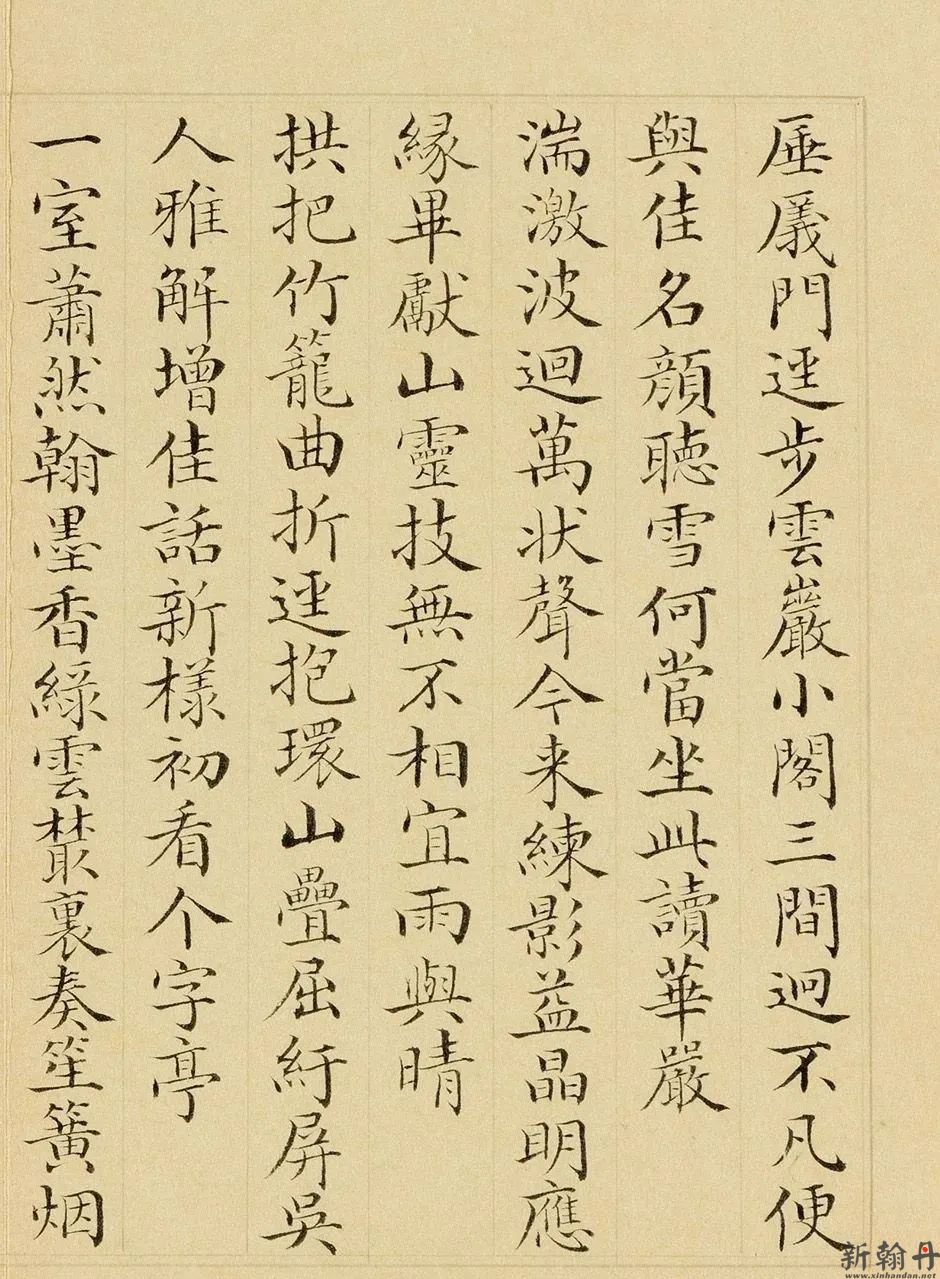 厜㕒門逕步雲巖小閣三間迥不凡便
與佳名顔聽雪何當坐此讀華嚴
湍激波迴萬状聲今来練影益晶明應
緣畢獻山靈技無不相宜雨與晴
拱把竹籠曲折逕抱環山疊屈紆屏吳
人雅解增佳話新樣初看个字亭
一室蕭然翰墨香緑雲叢裏奏笙簧烟
新翰丹
www.xinhandan.net